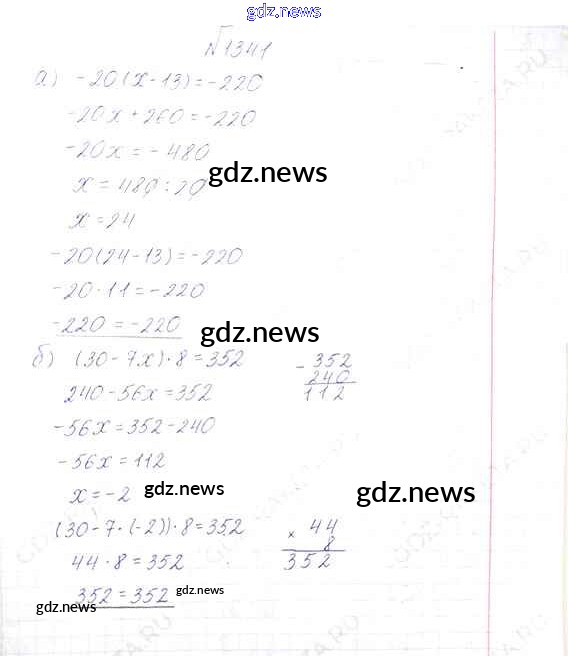 gdz.news
№1341
а) -20(x-13)=-220
-20x+260=-220
-20x=-480
x=480:20
gdz.news
x=24
-20(24-13)=-220
-20·11=-220
-220=-220
gdz.news
б) (30-7x)·8=352
240-56x=352
-56x=352-240
-56x=112
x=-2
gdz.news
(30-7·(-2))·8=352
44·8=352
352=352
gdz.news
gdz.news
- 352
240
112
gdz.news
× 44
8
352